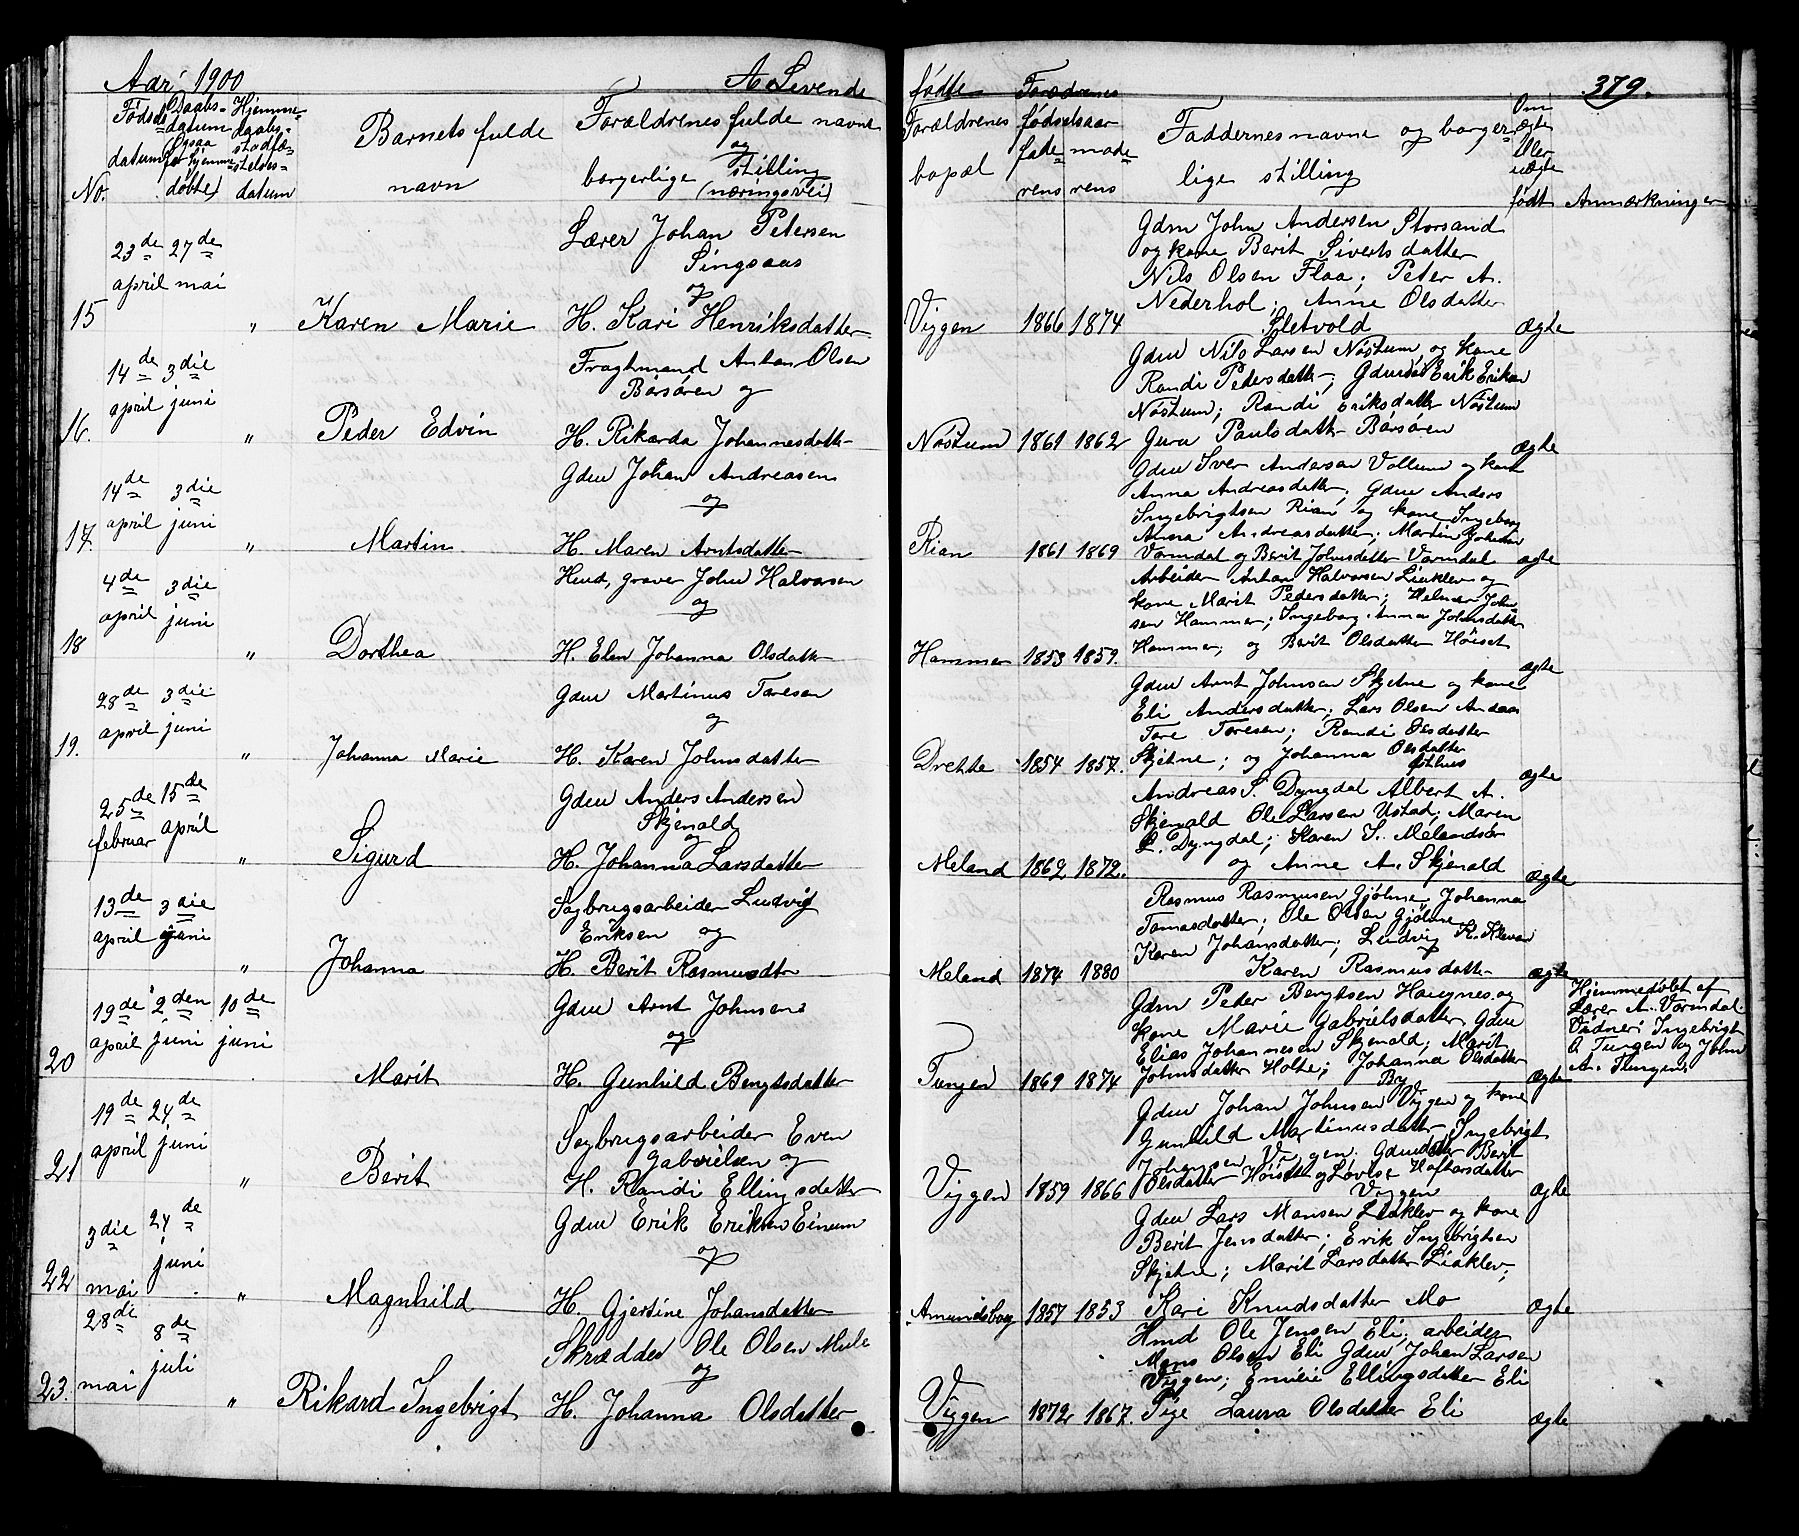 Aar 1900
A. Levende
fødte
379.
No.
Fødsels
datum
Daabs-
datum
Ogsaa
for hjemme
døbte)
Hjemme-
daabs-
stadfæ-
stelses-
datum
Barnets fulde
navn
Forældrenes fulde navne
og
borgerlige stilling
(næringsvei)
Forældrenes
bopæl
Forældrenes
fødselsaar
fade-
rens
mode-
rens
Faddernes navne og borger-
lige stilling
Om
ægte
eller
uægte
født
Anmærkninger
15
23de april
27de mai
"
Karen Marie
Lærer Johan Petersen
Singsaas
og
H. Kari Henriksdatter
Viggen
1866
1874
Gdm John Andersen Storsand
og kone Berit Sivertsdatter
Nils Olsen Flaa; Peter A.
Nederhol; Anne Olsdatter
Sletvold
Ægte
16.
14de april
3die juni
"
Peder Edvin
Fragtmand Anton Olsen
Børsøren og
H. Rikarda Johannesdatter
Nøstum
1861
1862
Gdm Nils Larsen Nøstum og kone
Randi Petersdatter; Erik Eriksen
Nøstum; Randi Eriksdatter Nøstum
Guru Paulsdatter Børsøren
ægte
17.
14de april
3die juni
"
Martin
Gdm Johan Andreasen
og
H. Maren Arntsdatter
Rian
1861
1869
Gdm Iver Andersen Vollum og kone
Anna Andreasdatter; Gdm Anders
Ingebrigtsen Rian og kone Ingeborg
Anna Andreasdatter; Martin Johansen
Vormdal og Berit Johnsdatter Vormdal
ægte
18
4de april
3die juni
"
Dorthea
Hmd, graver John Halvorsen
og
H. Elen Johanna Olsdatter
Hammer
1853
1859.
Arbeider Anton Halvorsen Liaklev og
kone Marit Pedersdatter; Helmer John
sen Hammer; Ingeborg Anna Johnsdatter
Hammer; og Berit Olsdatter Høiset
ægte
19.
28de april
3die juni
"
Johanna Marie
Gdm Martinus Toresen
og
H. Karen Johnsdatter
1854
1857.
Gdm Arnt Johnsen Skjetne og kone
Eli Andersdatter; Lars Olsen
Tore Toresen; Randi Olsdatter
Skjetne; og Johanna Olsdatter
ægte
25de februar
15de april
"
Sigurd
Gdm Anders Andersen
Skjenald
og
H. Johanna Larsdatter
Meland
1862
1872.
Andreas S. Dyngdal Albert A.
Skjenald Ole Larsen Ustad; Maren
L. Dyngdal; Karen S. Melandsør
og Anne A. Skjenald
Ægte
13de april
3die juni
"
Johanna
Sagbrugsarbeider Ludvig
Eriksen og
H. Berit Rasmusdtr
Meland
1874
1880
Rasmus Rasmusen Gjølme Johanna
Tomasdatter; Ole Olsen Gjølme
Karen Johansdatter; Ludvig K. Klevan
Karen Rasmusdatter
ægte
20
19de april
2den juni
10de juni
Marit
Gdm Arnt Johnsen
og
H. Gunhild Bengtsdatter
Tungen
1869
1874
Gdm Peder Bengtsen Haugnes og
kone Marie Gabrielsdatter Gdm
Elias Johannesen Skjenald; Marit
Johnsdatter Holte; Johanna Olsdatter
By
Ægte
Hjemmedøbt af
Lærer A. Vormdal.
Vidner: Ingebrigt
O Tungen og John
A. Tungen.
21
19de april
24de juni
"
Berit
Sagbrugsarbeider Even
Gabrielsen og
H. Randi Ellingsdatter
Viggen
1859
1866
Gdm Johan Johnsen Viggen og kone
Gunhild Martinusdatter Ingebrigt
Johansen Viggen. Berit
Olsdatter Høiset og Lovise Hofharsdatter
Viggen
Ægte
22
3die mai
24de juni
"
Magnhild
Gdm Erik Eriksen Einum
og
H. Gjertine Johansdatter
Amundsbog
1857
1853
Gdm Lars Monsen Liaklev og kone
Berit Jensdatter; Erik Ingebrigtsen
Skjetne; Marit Larsdatter Liaklev;
Kari Knudsdatter Mo
Ægte
23.
28de mai
8de juli
"
Rikard Ingebrigt
Skrædder Ole Olsen Mule
og
H. Johanna Olsdatter
Viggen
1872
1867.
Hmd Ole Jensen Eli; arbeider
Mons Olsen Eli Gdm Johan Larsen
Viggen; Emilie Ellingsdatter Eli
Pige Laura Olsdatter Eli
Ægte